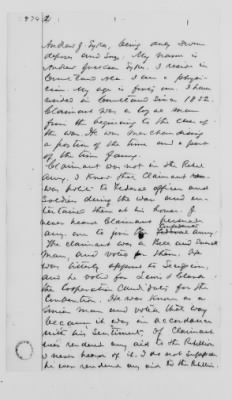 2
Andrew J. Sykes, being duly sworn
deposes and says. My name is
Andrew Jackson Sykes. I reside in
Courtland Ala. I am a physi-
cian. My age is forty six. I have
resided in Courtland since 1852.
Claimant was a loyal man
from the beginning to the close of
the war. He was merchandising
a portion of the time and a part
of the time farming.
Claimant was not in the Rebel
Army. I know that Claimant
was polite to Federal officers and
soldiers during the war and en-
tertained them at his house. I
never heard Claimant
any one to join the Confederate army.
The claimant was a Bell and Everett
man, and voted for them. He
was bitterly opposed to Secession
and he voted for
the Cooperation Candidates for the
Convention. He was known as a
Union man and voted that way
because it was in accordance
with his sentiment. If Claimant
ever rendered any aid to the Rebellion
I never heard of it. I do not suppose
he ever rendered any aid to the Rebellion.